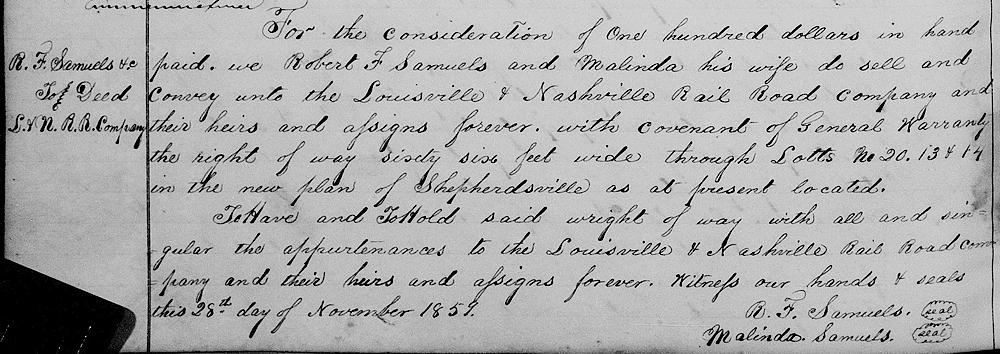 For the consideration of One hundred dollars in hand
R. F. Samuels &c
paid. we Robert F Samuels and Malinda his wife do sell and
To} Deed
Convey unto the Louisville & Nashville Rail Road Company and
L. & N. R. R. Company
their heirs and assigns forever. with covenant of General Warranty
the right of way sixty six feet wide through Lotts No 20. 13 & 14
in the new plan of Shepherdsville as at present located.
To Have and To Hold said wright of way with all and sin=
=gular the appurtenances to the Louisville & Nashville Rail Road com=
=pany and their heirs and assigns forever. Witness our hands & seals
this 28th day of November 1857.
R. F. Samuels. seal
Malinda. Samuels. seal